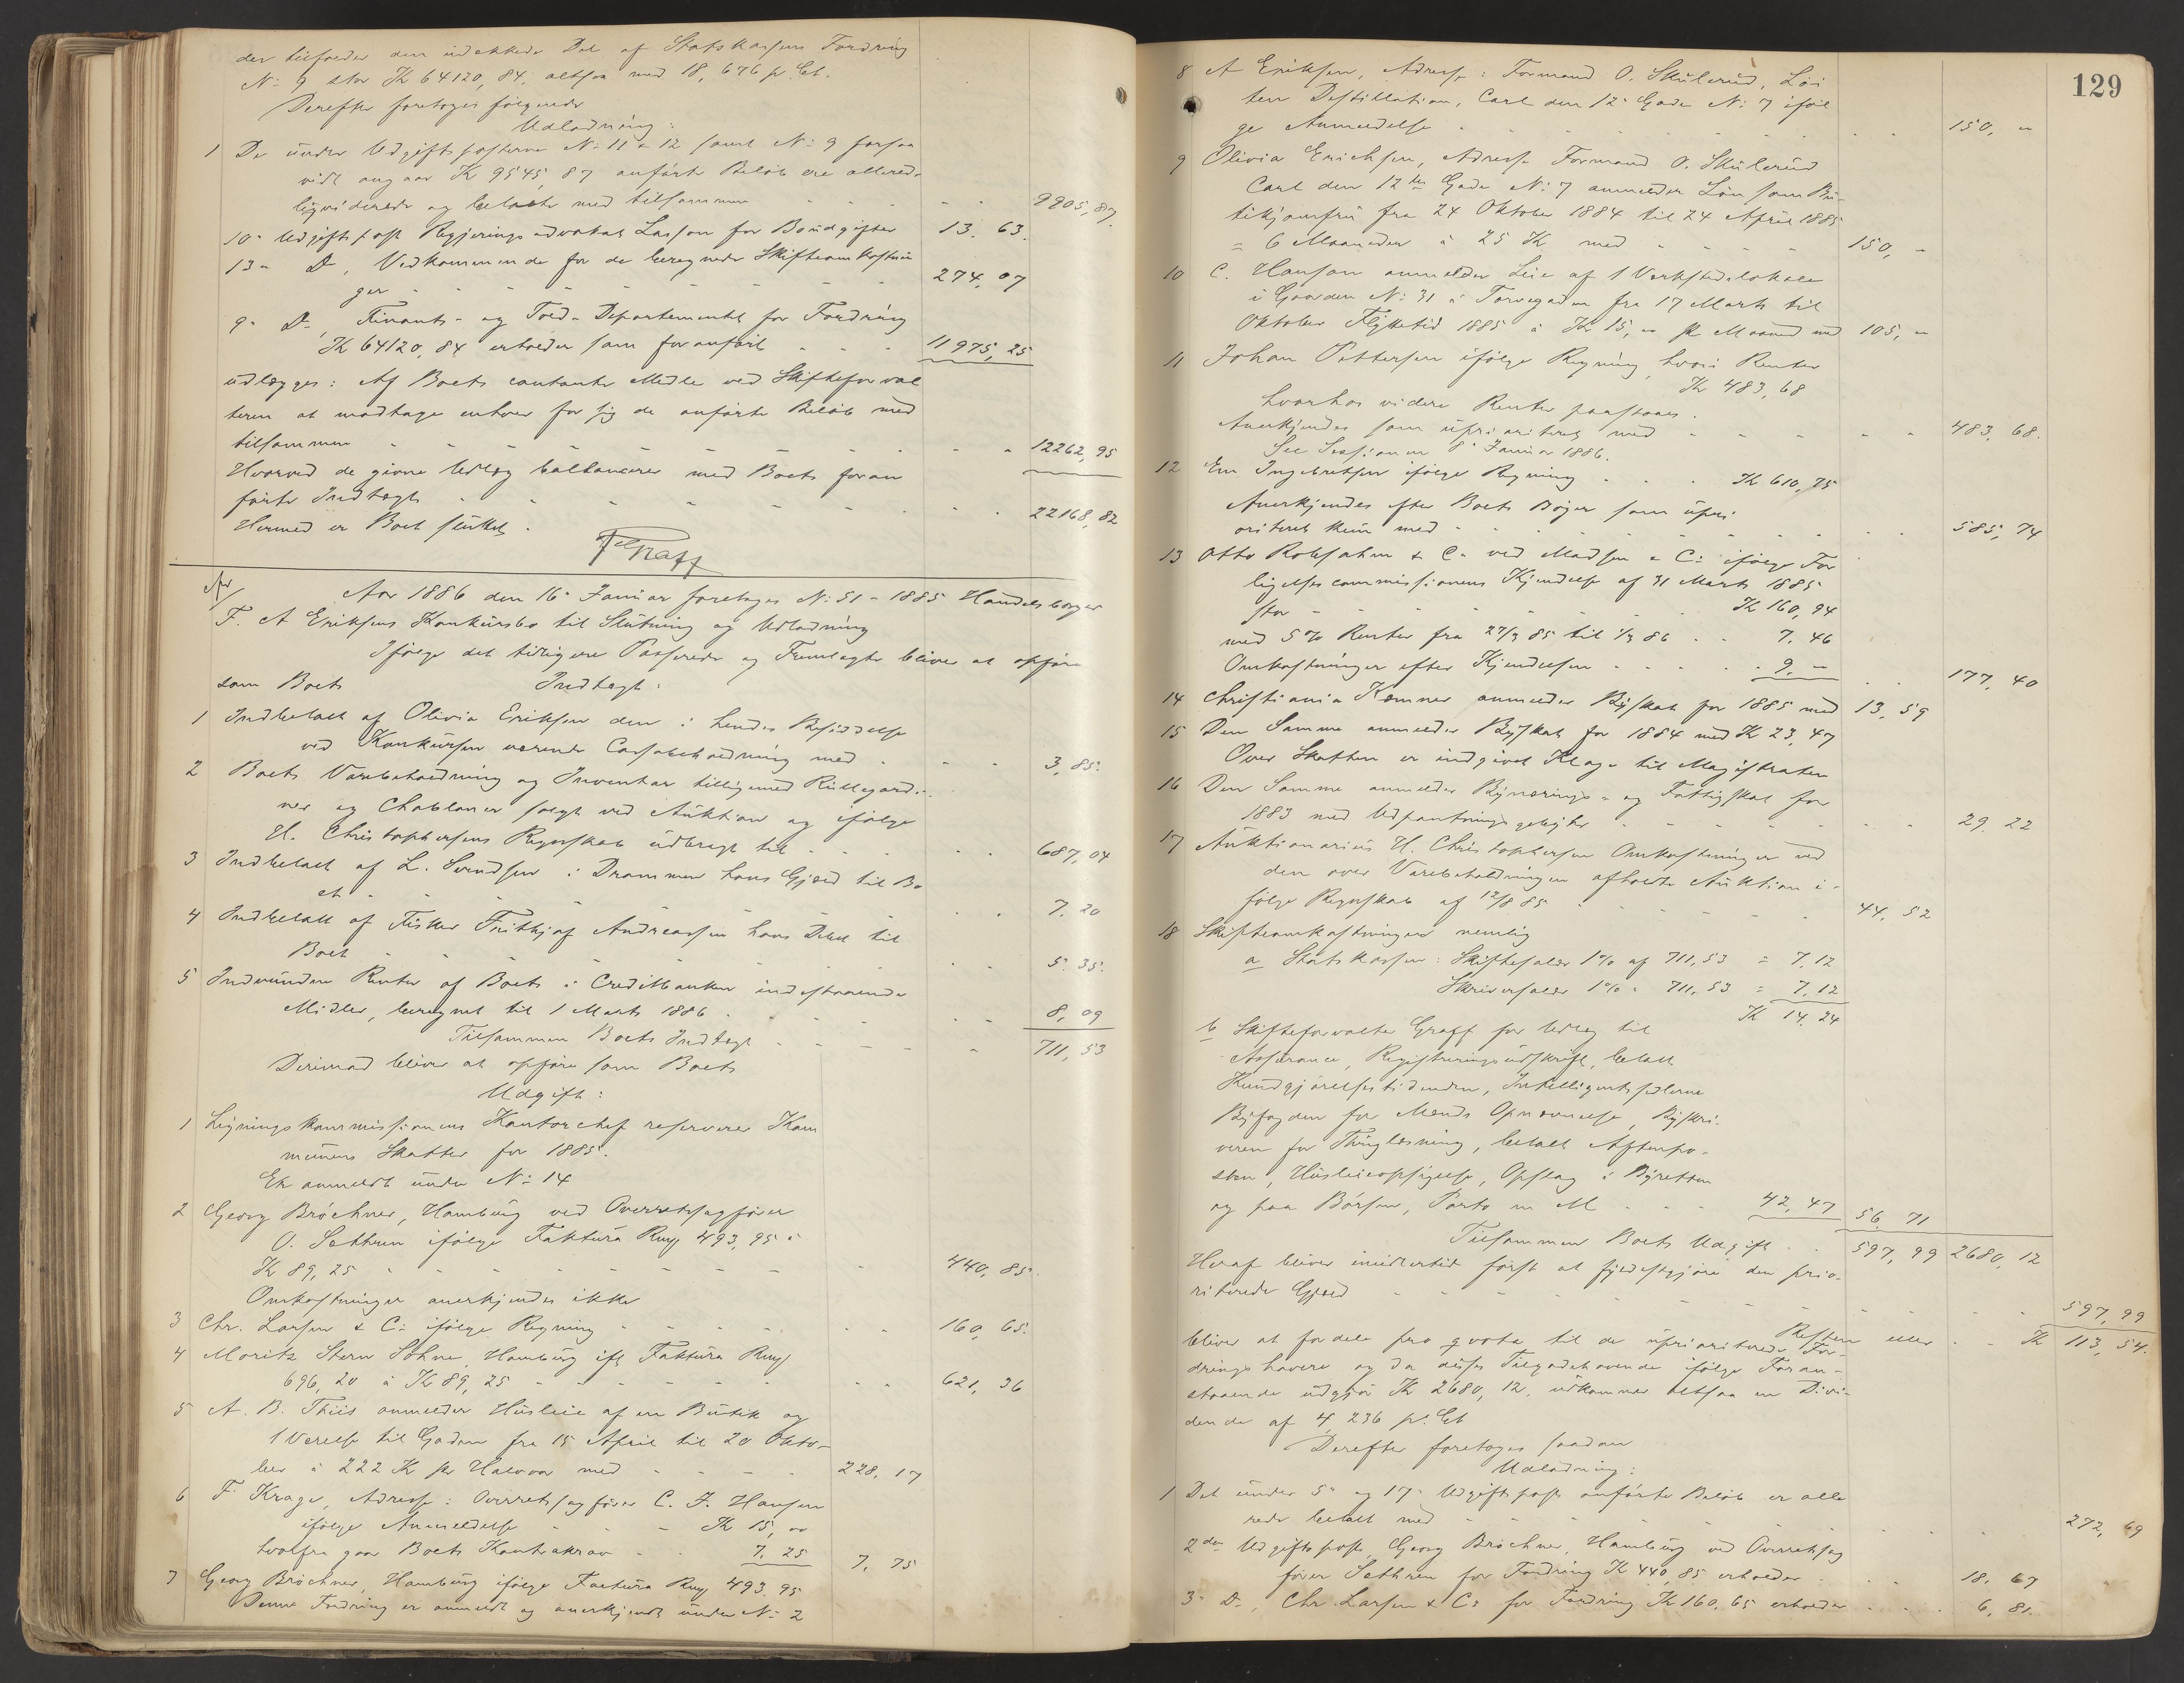 der tilfalder den udækkede Del af Statskassens Fordring
No 9 stor Kr 64120,84, altsaa med 18,676 pr. Ct.
Derefter foretoges følgende
Udlodning:
1 De under Udgiftsposterne No 11 & 12 samt No 9 forsaa
vidt angaar Kr 9545,87 anførte Beløb ere allerede
ligviderede og betalte med tilsammen - - - - 9905,87.
10- Udgiftspost Regjeringsadvokat Lasson for Boudgifter 13. 63.
13- Do, Vedkommende for de beregnede Skifteomkostnin
ger - - - - - - 274,07
9- Do, Finants- og Told-Departementet for Fordring
Kr 64120,84 erholder som foranført - - - 11975,25
udlægges: Af Boets contante Midler ved Skifteforval
teren at modtage enhver for sig de anførte Beløb med
tilsammen - - - - - - 12262,95
Hvorved de givne Udlæg ballancerer med Boets foran
førte Indtægt - - - - - - 22168,82
Hermed er Boet sluttet.
Graff
Aar 1886 den 16- Januar foretoges No 51-1885 Handelsborger
F. A Eriksens Konkursbo til Slutning og Udlodning
Ifølge det tidligere Passerede og Fremlagte bliver at opføre
som Boets Indtægt:
1 Indbetalt af Olivia Eriksen den i hendes Besiddelse
ved Konkursen værende Cassabeholdning med - - - 3,85.
2 Boets Varebeholdning og Inventar tilligemed Rullegardi-
ner og Chabloner solgt ved Auktion og ifølge
H. Christophersens Regnskab udbragt til - - - 687,04
3 Indbetalt af L. Svendsen i Drammen hans Gjæld til Bo
et - - - - - - 7. 20
4 Indbetalt af Fisker Frithjof Andreassen hans Debet til
Boet - - - - - - 5. 35.
5 Indvundne Renter af Boets i Creditbanken indestaaende
Midler, beregnet til 1 Marts 1886 - - - 8,09
Tilsammen Boets Indtægt - - - - 711,53
Derimod bliver at opføre som Boets
Udgift:
1 Ligningskommissionens Kontorchef reserverer Kom
munens Skatter for 1885.
Er anmeldt under No 14
2 Georg Bröchner, Hamburg ved Overretssagfører
O. Sethren ifølge Faktura Rmg 493,95 à
Kr 89,25 - - - - - - 440,85.
Omkostninger anerkjendes ikke
3 Chr. Larsen & Co ifølge Regning - - - - 160,65.
4 Moritz Stern Söhne, Hamburg ifl Faktura Rmg
696,20 à Kr 89,25 - - - - - 621,36
5 A. B. Thiis anmelder Husleie af en Butik og
1 Værelse til Gaden fra 15 April til 20 Okto-
ber à 222 Kr pr Halvaar med - - - - 228. 17
6 F. Krage, Adresse: Overretssagfører C. J. Hansen
ifølge Anmeldelse - - - Kr 15,00
hvorfra gaar Boets Kontrakrav - - 7. 25 7,75
7 Georg Bröchner, Hamburg ifølge Factura Rmg 493.95
Denne Fordring er anmeldt og anerkjendt under No 2
129
8 A Eriksen, Adresse: Formand O. Skulerud, Løi
tens Destillation, Carl den 12- Gade No 7 iføl
ge Anmeldelse - - - - - - 150,-
9 Olivia Erichsen, Adresse Formand O. Skulerud
Carl den 12te Gade No 7 anmelder Løn som Bu-
tikjomfru fra 24 Oktober 1884 til 24 April 1885
= 6 Maaneder à 25 Kr med - - - - 150,-
10 C. Hanson anmelder Leie af 1 Verkstedslokale
i Gaarden No 31 i Torvegaden fra 17 Marts til
Oktober Flyttetid 1885 à Kr 15,00 pr Maaned med 105,-
11 Johan Pettersen ifølge Regning, hvori Renter
Kr 483,68
hvorhos videre Renter paastaaes.
Anerkjendes som uprioriteret med - - - - 483,68.
See Sessionen 8- Januar 1886.
12 Em Ingebretsen ifølge Regning - - - Kr 610,75
Anerkjendes efter Boets Bøger som upri-
oriteret kun med - - - - - 585,74
13 Otto Robsahm & Co ved Madsen & Co ifølge For
ligelsescommissionens Kjendelse af 31 Marts 1885
stor - - - - - Kr 160,94
med 5% Renter fra 27/3 85 til 1/3 86 - - 7. 46
Omkostninger efter Kjendelsen - - - - 9.- 177,40
14 Christiania Kæmner anmelder Byskat for 1885 med 13,59
15 Den Samme anmelder Byskat for 1884 med Kr 23,47
Over Skatten er indgivet Klage til Magistraten
16 Den Samme anmelder Bynærings- og Fattigskat for
1883 med Udpantningsgebyhr - - - - 29. 22
17 Auktionarius H. Christophersen Omkostninger ved
den over Varebeholdningen afholdte Auktion i-
følge Regnskab af 12/8 85 - - - - 44. 52
18 Skifteomkostninger nemlig
a Statskassen: Skiftesalær 1% af 711,53 = 7,12
Skriversalær 1% - 711,53 = 7,12
Kr 14,24
b Skifteforvalter Graff for Udlæg til
Assurance, Registreringsudskrift, betalt
Kundgjørelsestidenden, Intelligentssedlerne
Byfogden for Mænds Opnævnelse, Byskri-
veren for Thinglæsning, betalt Aftenpo-
sten, Husleieopsigelse, Opslag i Byretten
og paa Børsen, Porto m M - - - 42,47 56,71
Tilsammen Boets Udgift - - 597,99 2680,12
Heraf bliver imidlertid først at fyldestgjøre den prio-
riterede Gjæld - - - - - - 597,99
Resten eller - - Kr 113,54.
bliver at fordele pro qvota til de uprioriterede For-
dringshavere og da disses Tilgodehavende ifølge Foran-
staaende udgjør Kr 2680,12, udkommer altsaa en Divi-
dende af 4,236 pr. Ct
Derefter foretoges saadan
Udlodning:
1 Det under 5- og 17- Udgiftspost anførte Beløb er alle
rede betalt med - - - - - - 272,69
2den Udgiftspost, Georg Bröchner, Hamburg ved Overretssag
fører Sethren for Fordring Kr 440,85 erholder - - 18. 67
3- Do, Chr. Larsen & Co for Fordring Kr 160,65 erholder - - 6,81.